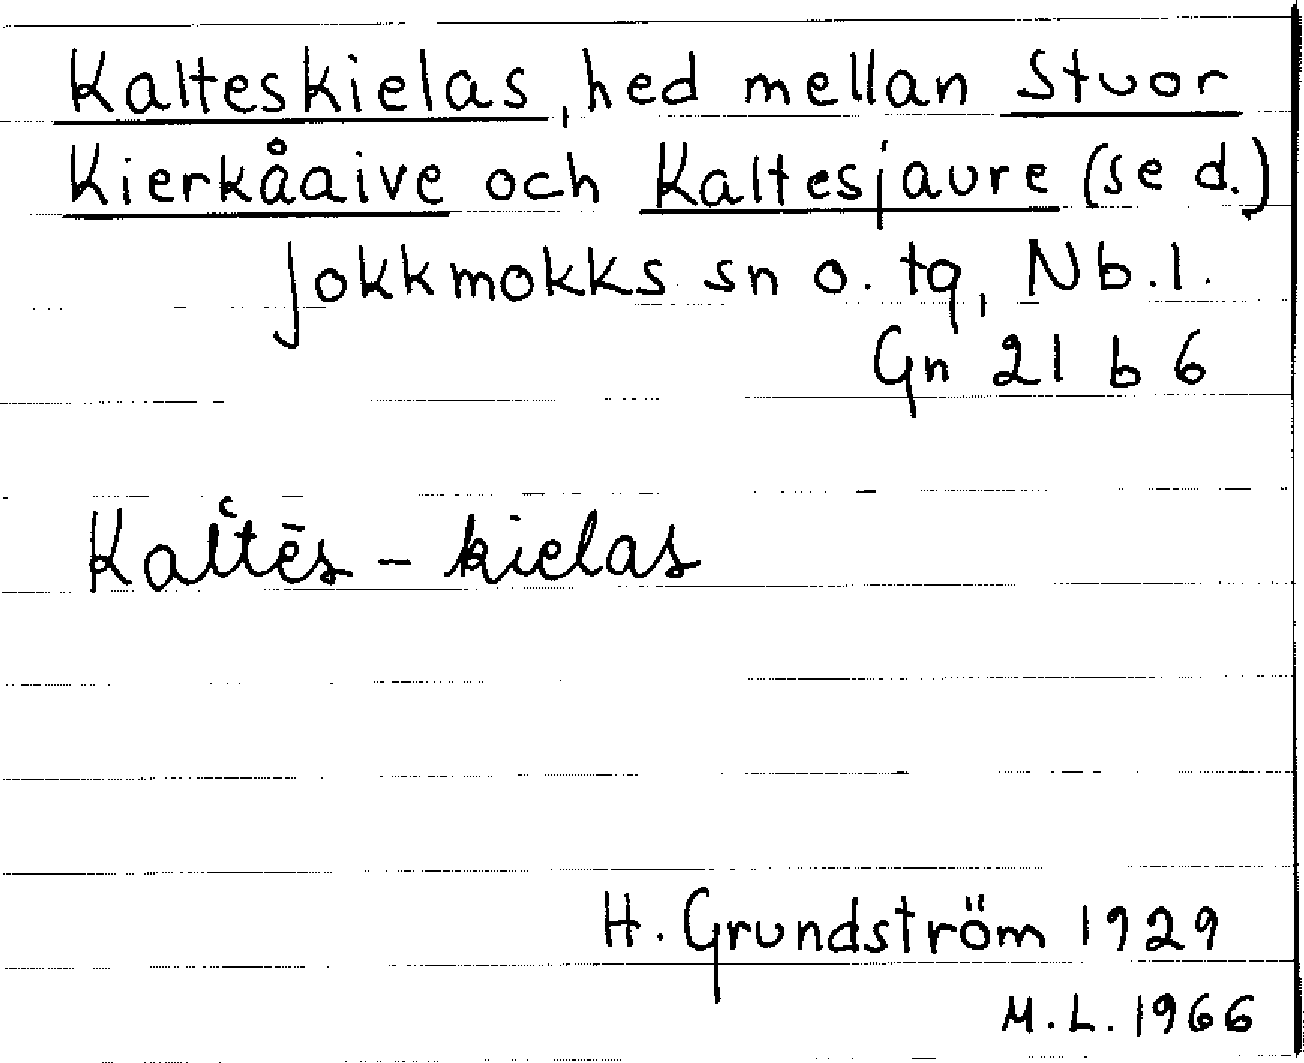 Kalteskielas, hed mellan Stuor
Kierkåaive och Kaltesjaure (se d.)
Jokkmokks sn o. tg, Nb.l.
Gn 21 b 6
Kalʿtēs - kielas
H. Grundström 1929
M.L. 1966